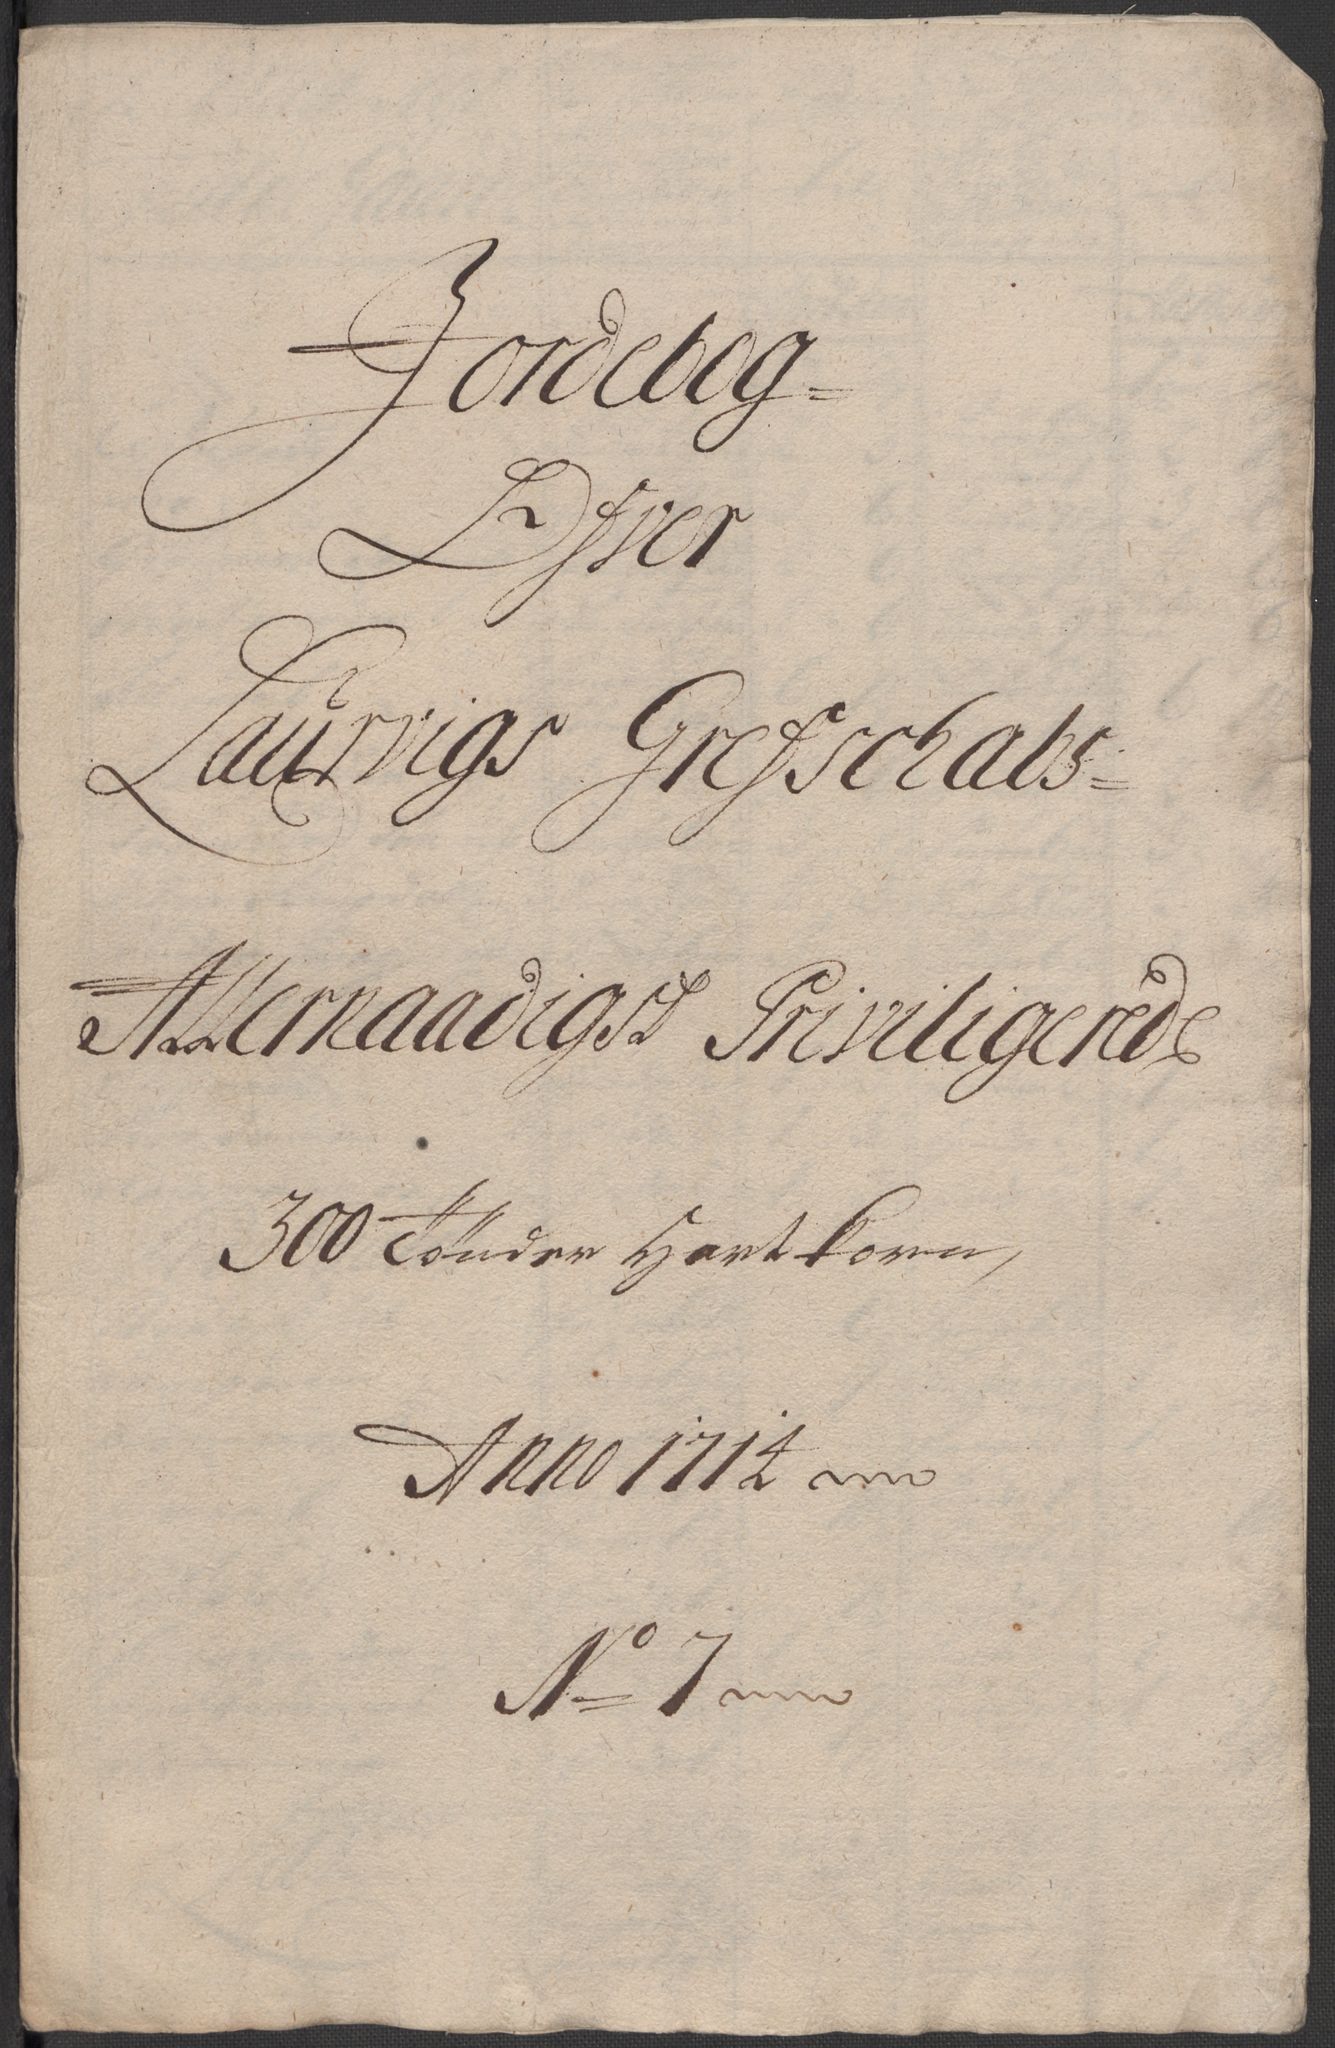 Jordebog=
Ofver
Laurvigs Grefschabs=
Allernaadigst Priviligerede
300 Tönder Hart Korn,
Anno 1714
No 7